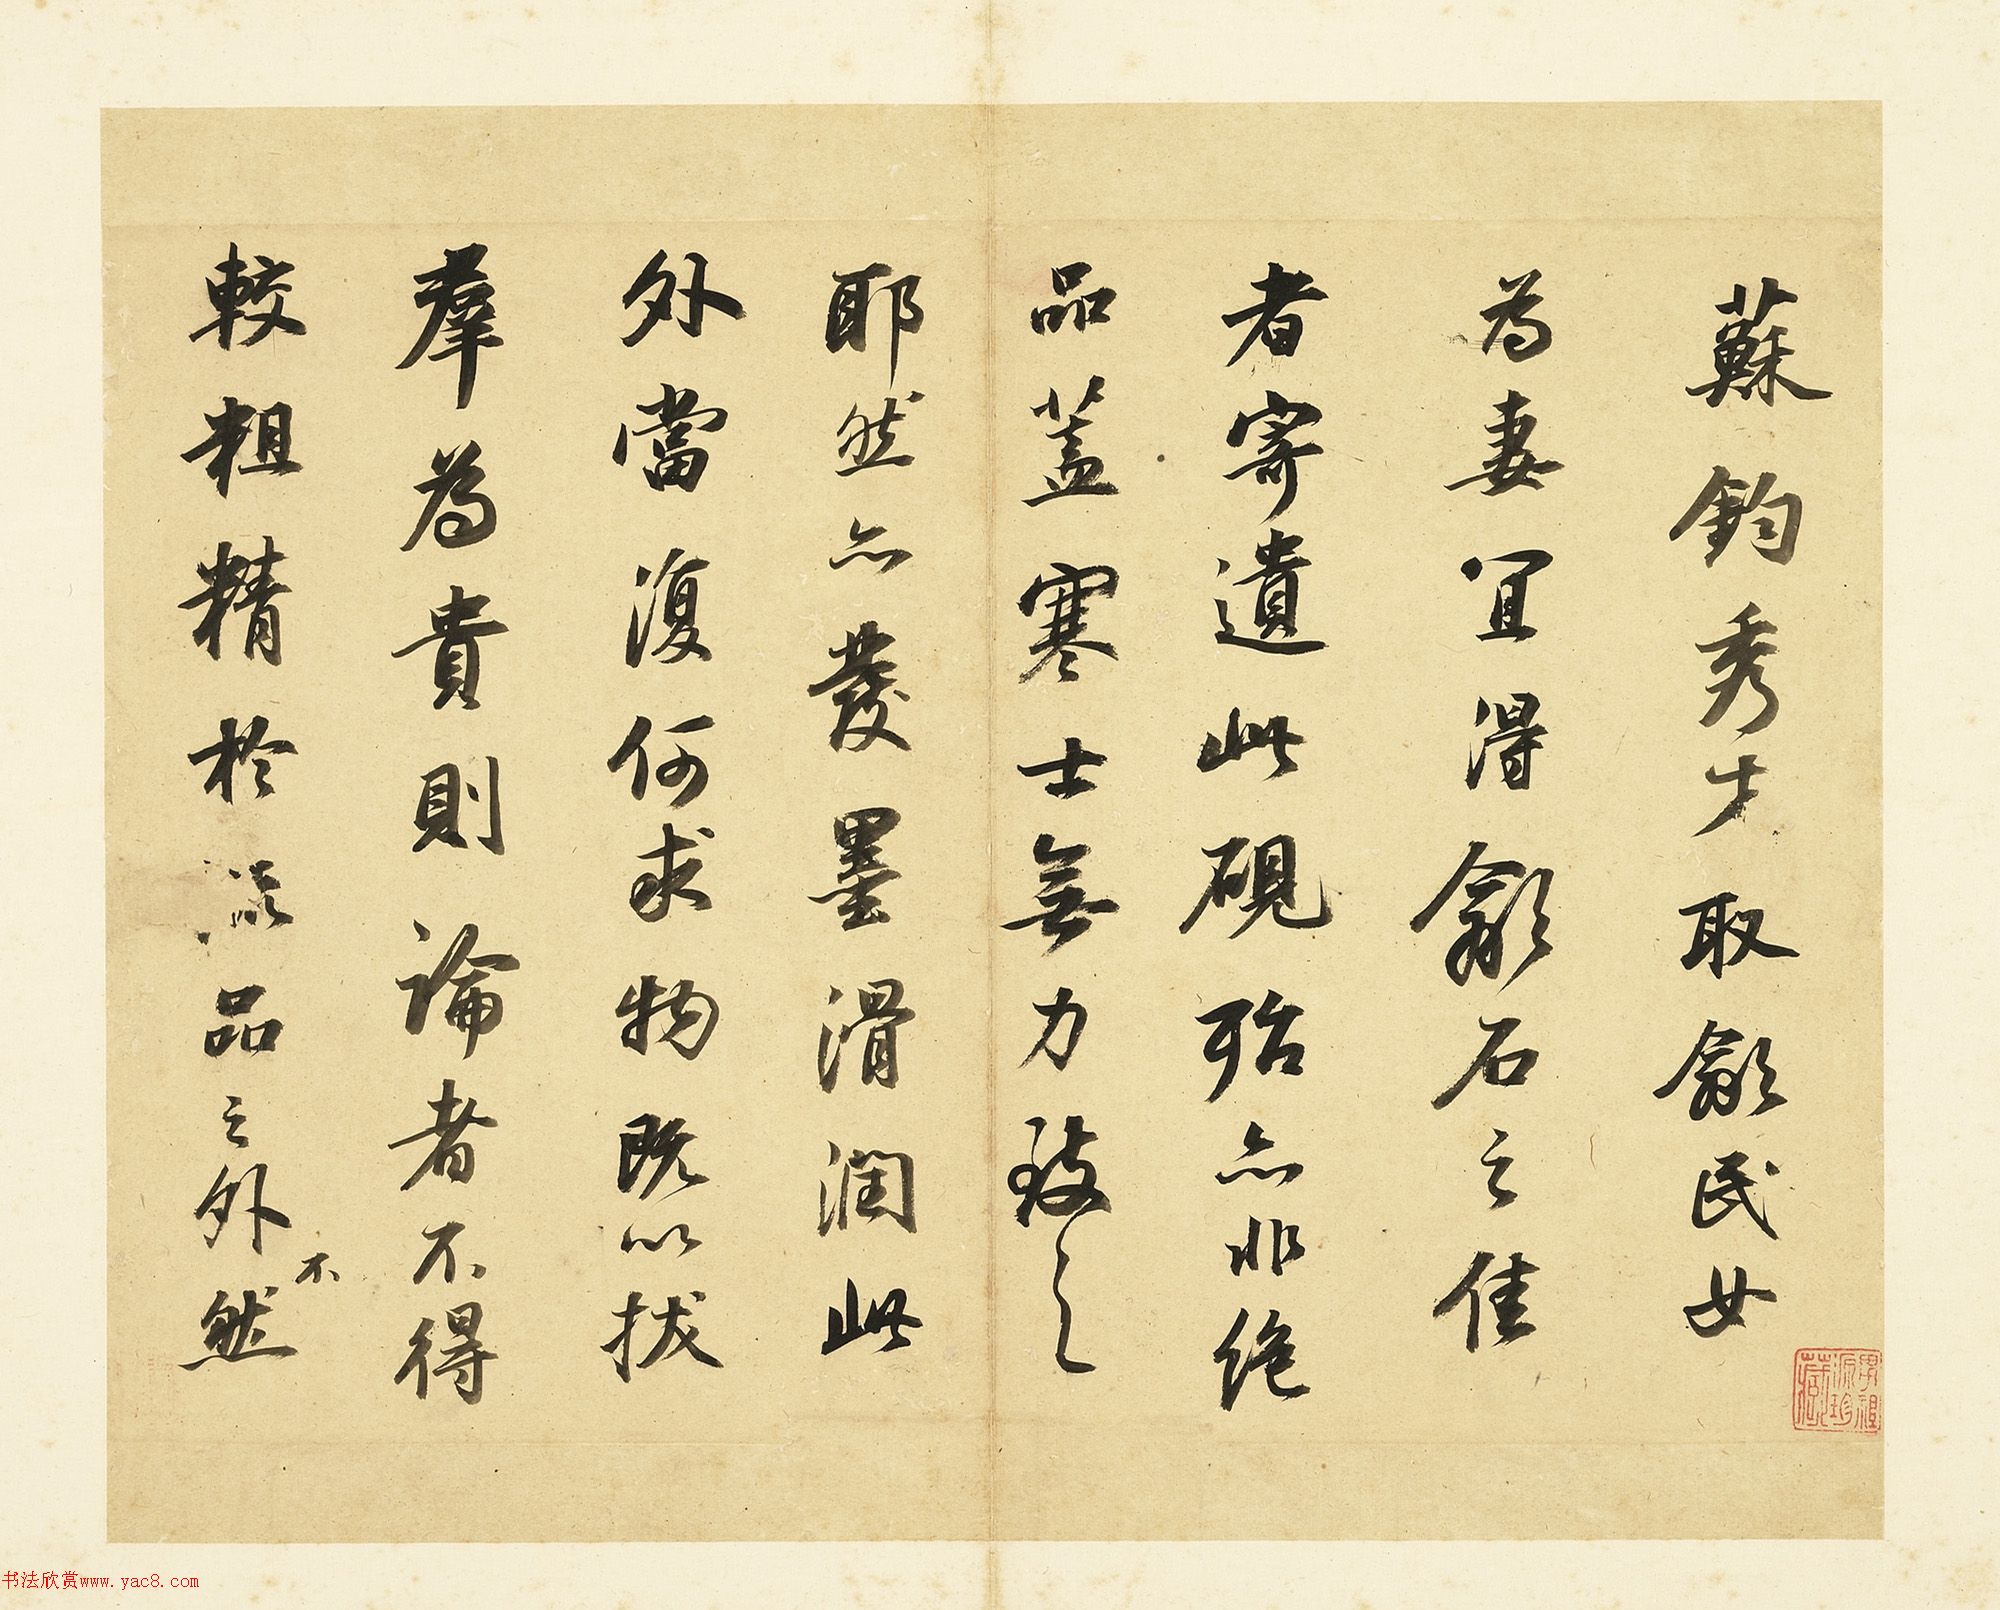 蘇鈞秀才取歙民女
為妻宜得歙石之佳
者寄遺此硯殆亦非絕
品蓋寒士無力致之
耶然亦發墨滑潤此
外當復何求物既以拔
羣為貴則論者不得
較粗精於流品之外不然
書法欣赏www.yac8.com